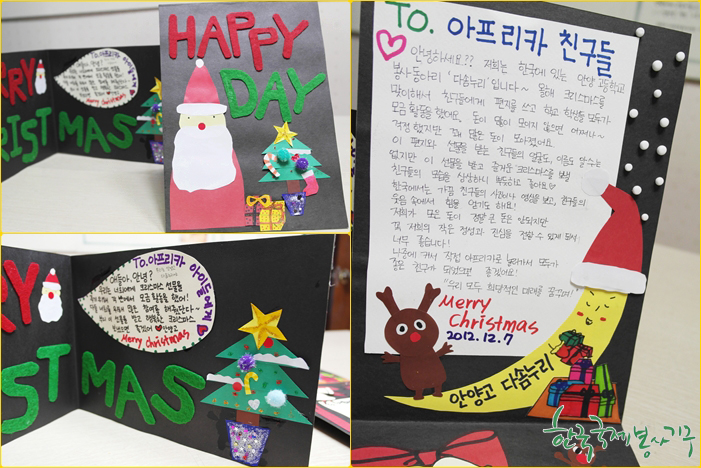 HAPPY
DAY
RRY
RISTMAS
To. 아프리카 아이들에게
Merry Christmas
RY
STMAS
To. 아프리카 아이들에게
얘들아, 안녕?
Merry Christmas
TO. 아프리카 친구들
안녕하세요?? 저희는 한국에 있는 안양 고등학교
봉사동아리 '다솜누리' 입니다~ 올해 크리스마스를
맞이해서 친구들에게 편지를 쓰고 학교 학생들 모두가
모금 활동을 했어요. 돈이 많이 모이지 않으면 어쩌나~
걱정했지만 꽤 많은 돈이 모아졌어요.
이 편지와 선물을 받는 친구들의 얼굴도, 이름도 알 수는
없지만 이 선물을 받고 즐거운 크리스마스를 보낼
친구들의 모습을 상상하니 뿌듯하고 좋아요♡
한국에서는 가끔 친구들의 사진이나 영상을 보고, 친구들의
웃음 속에서 힘을 얻기도 해요!
저희가 모은 돈이 정말 큰 돈은 안되지만
꼭 저희의 작은 정성과 진심을 전할 수 있게 되서
너무 좋습니다!
나중에 커서 직접 아프리카로 날아가서 모두가
좋은 친구가 되었으면 좋겠어요!
"우리 모두 희망적인 미래를 꿈꾸어!"
Merry
Christmas
2012.12.7
안양고 다솜누리
한국국제봉사기구